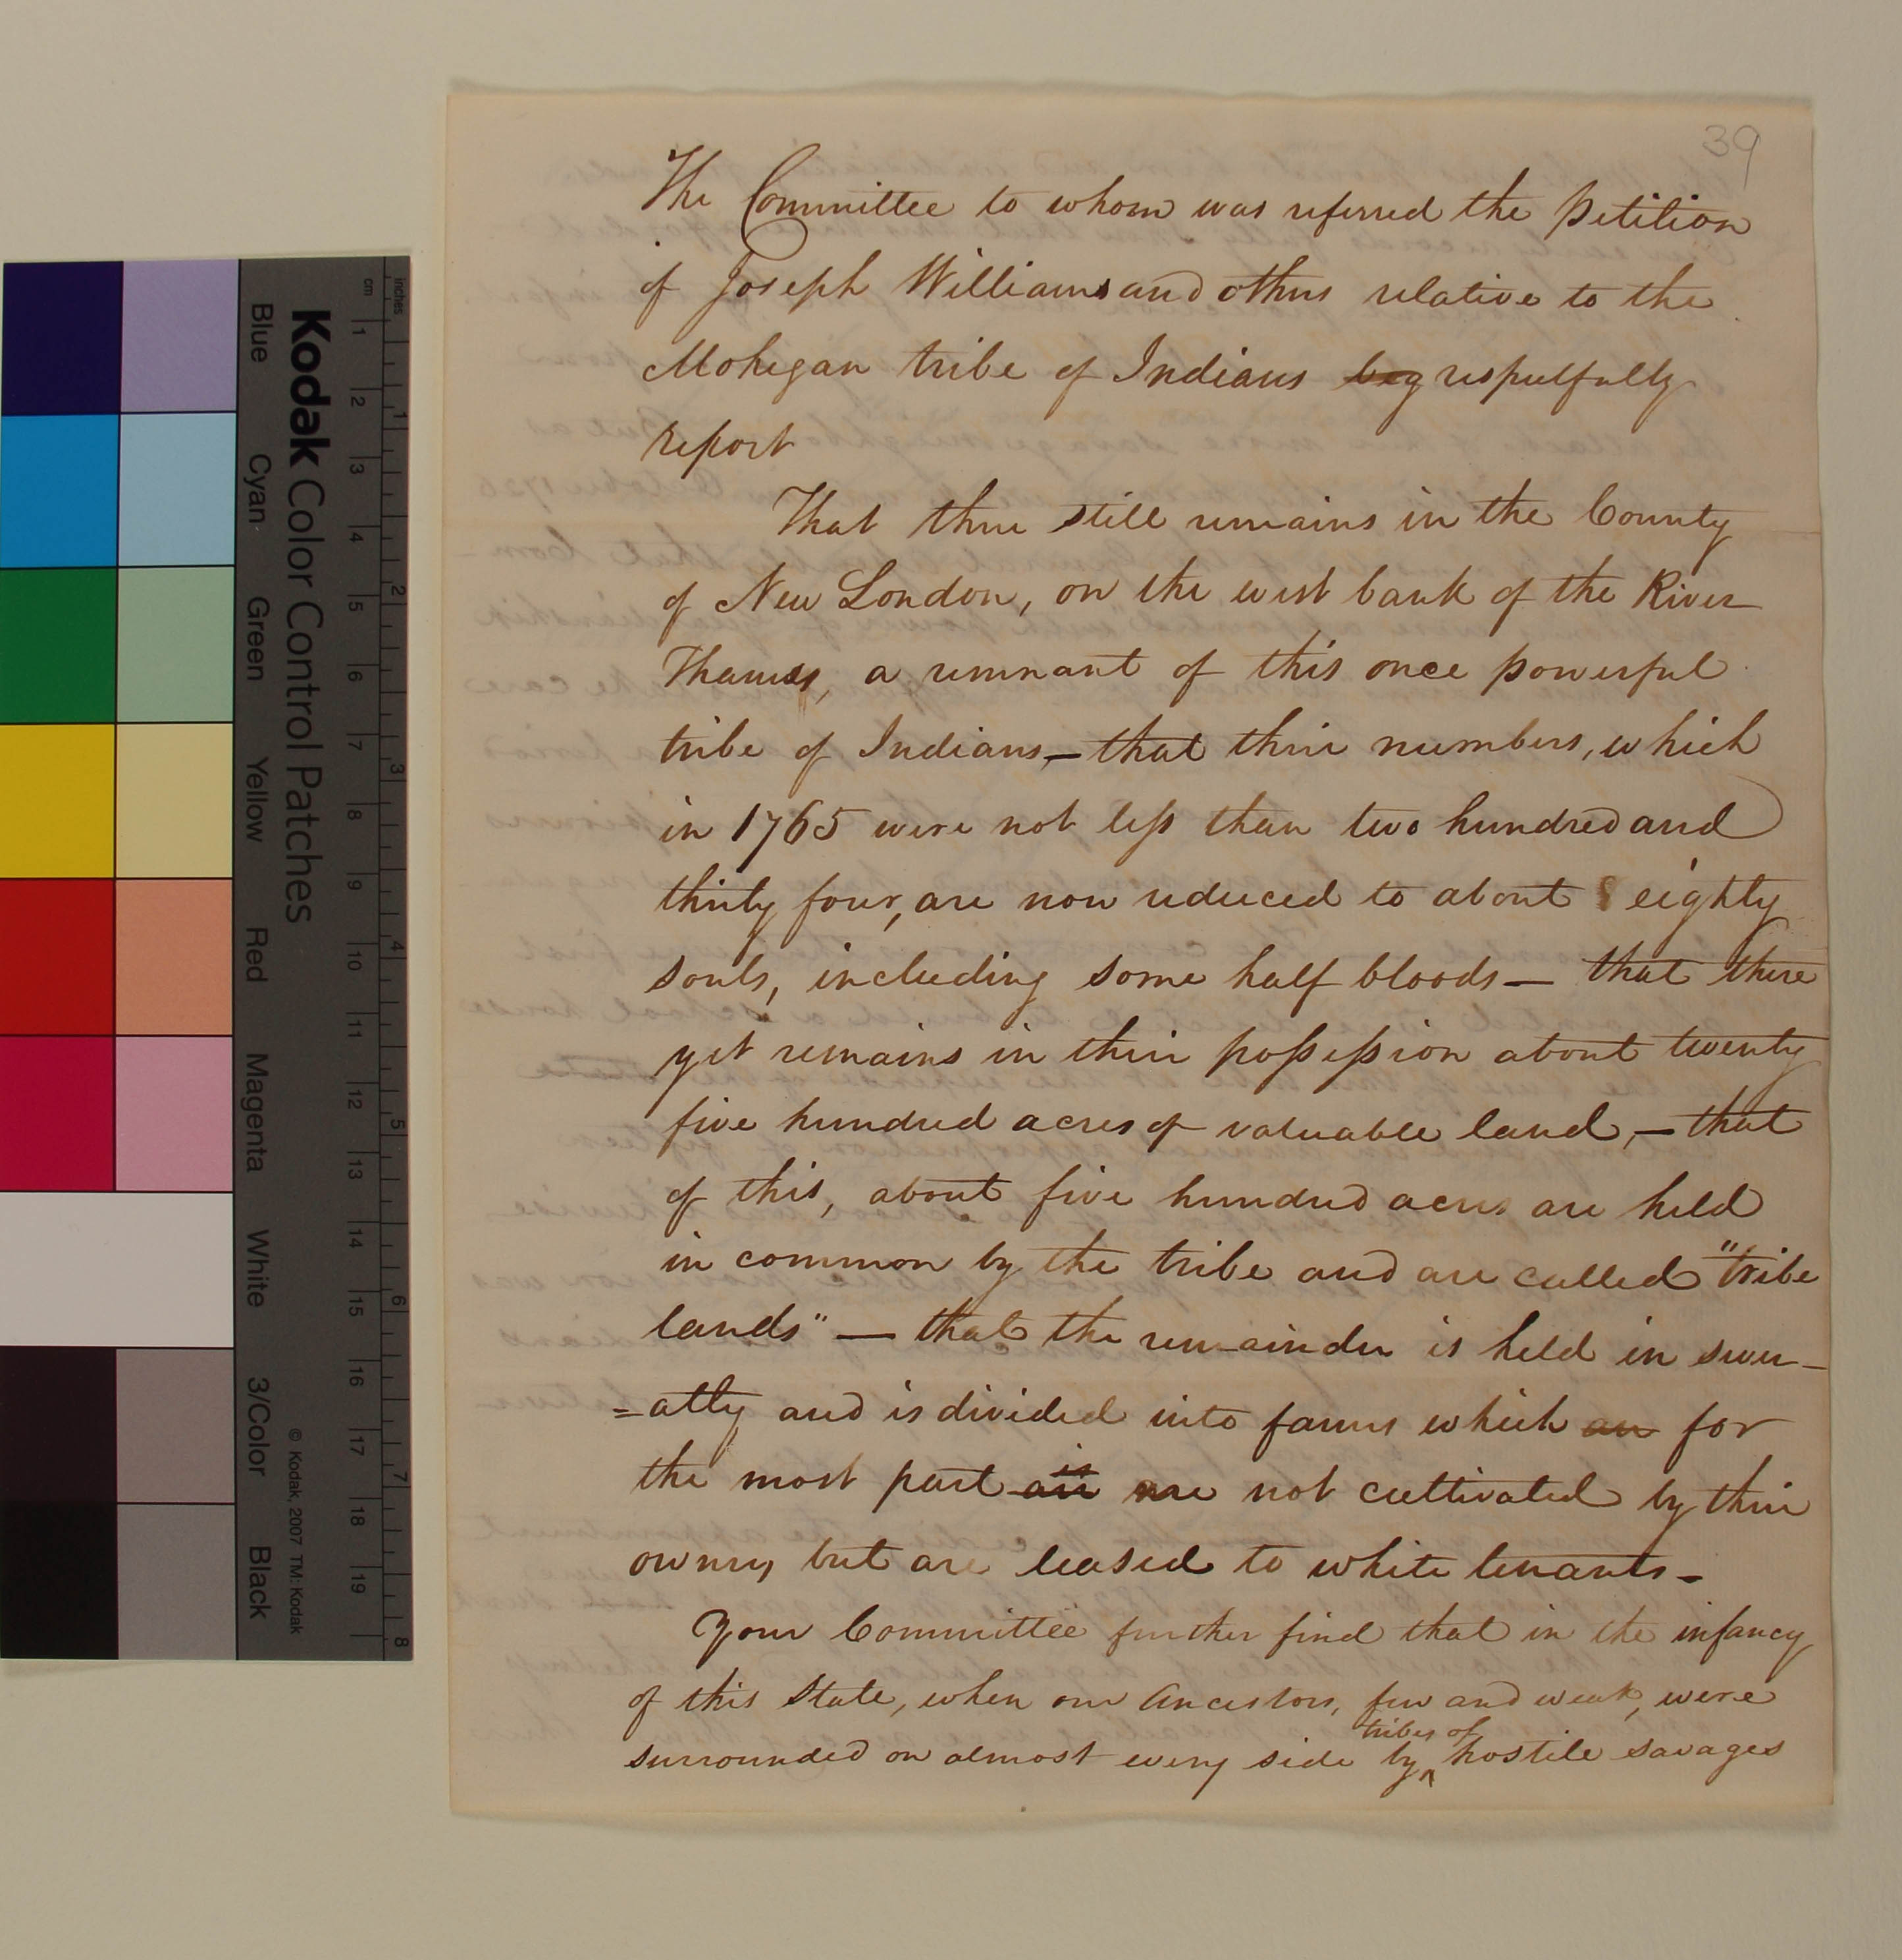 39
The Committee to whom was referred the Petition
of Joseph Williams and others relative to the
Mohegan tribe of Indians beg respectfully
report
That there still remains in the County
of New London, on the west bank of the River
Thames, a remnant of this once powerful
tribe of Indians,— that their numbers, which
in 1765 were not less than two hundred and
thirty four, are now reduced to about eighty
souls, including some half bloods — that there
yet remains in their possession about twenty
five hundred acres of valuable land, — that
of this, about five hundred acres are held
in common by the tribe and are called "tribe
lands" — that the remainder is held in sever-
=alty and is divided into farms which are for
is
the most part are not cultivated by their
owners, but are leased to white tenants –
Your Committee further find that in the infancy
of this State, when our Ancestors, few and weak, were
tribes of
surrounded on almost every side by ^ hostile savages
Kodak Color Control Patches
Blue Cyan Green Yellow Red Magenta White 3/Color Black
© Kodak, 2007 TM: Kodak
inches 1 2 3 4 5 6 7 8
cm 1 2 3 4 5 6 7 8 9 10 11 12 13 14 15 16 17 18 19